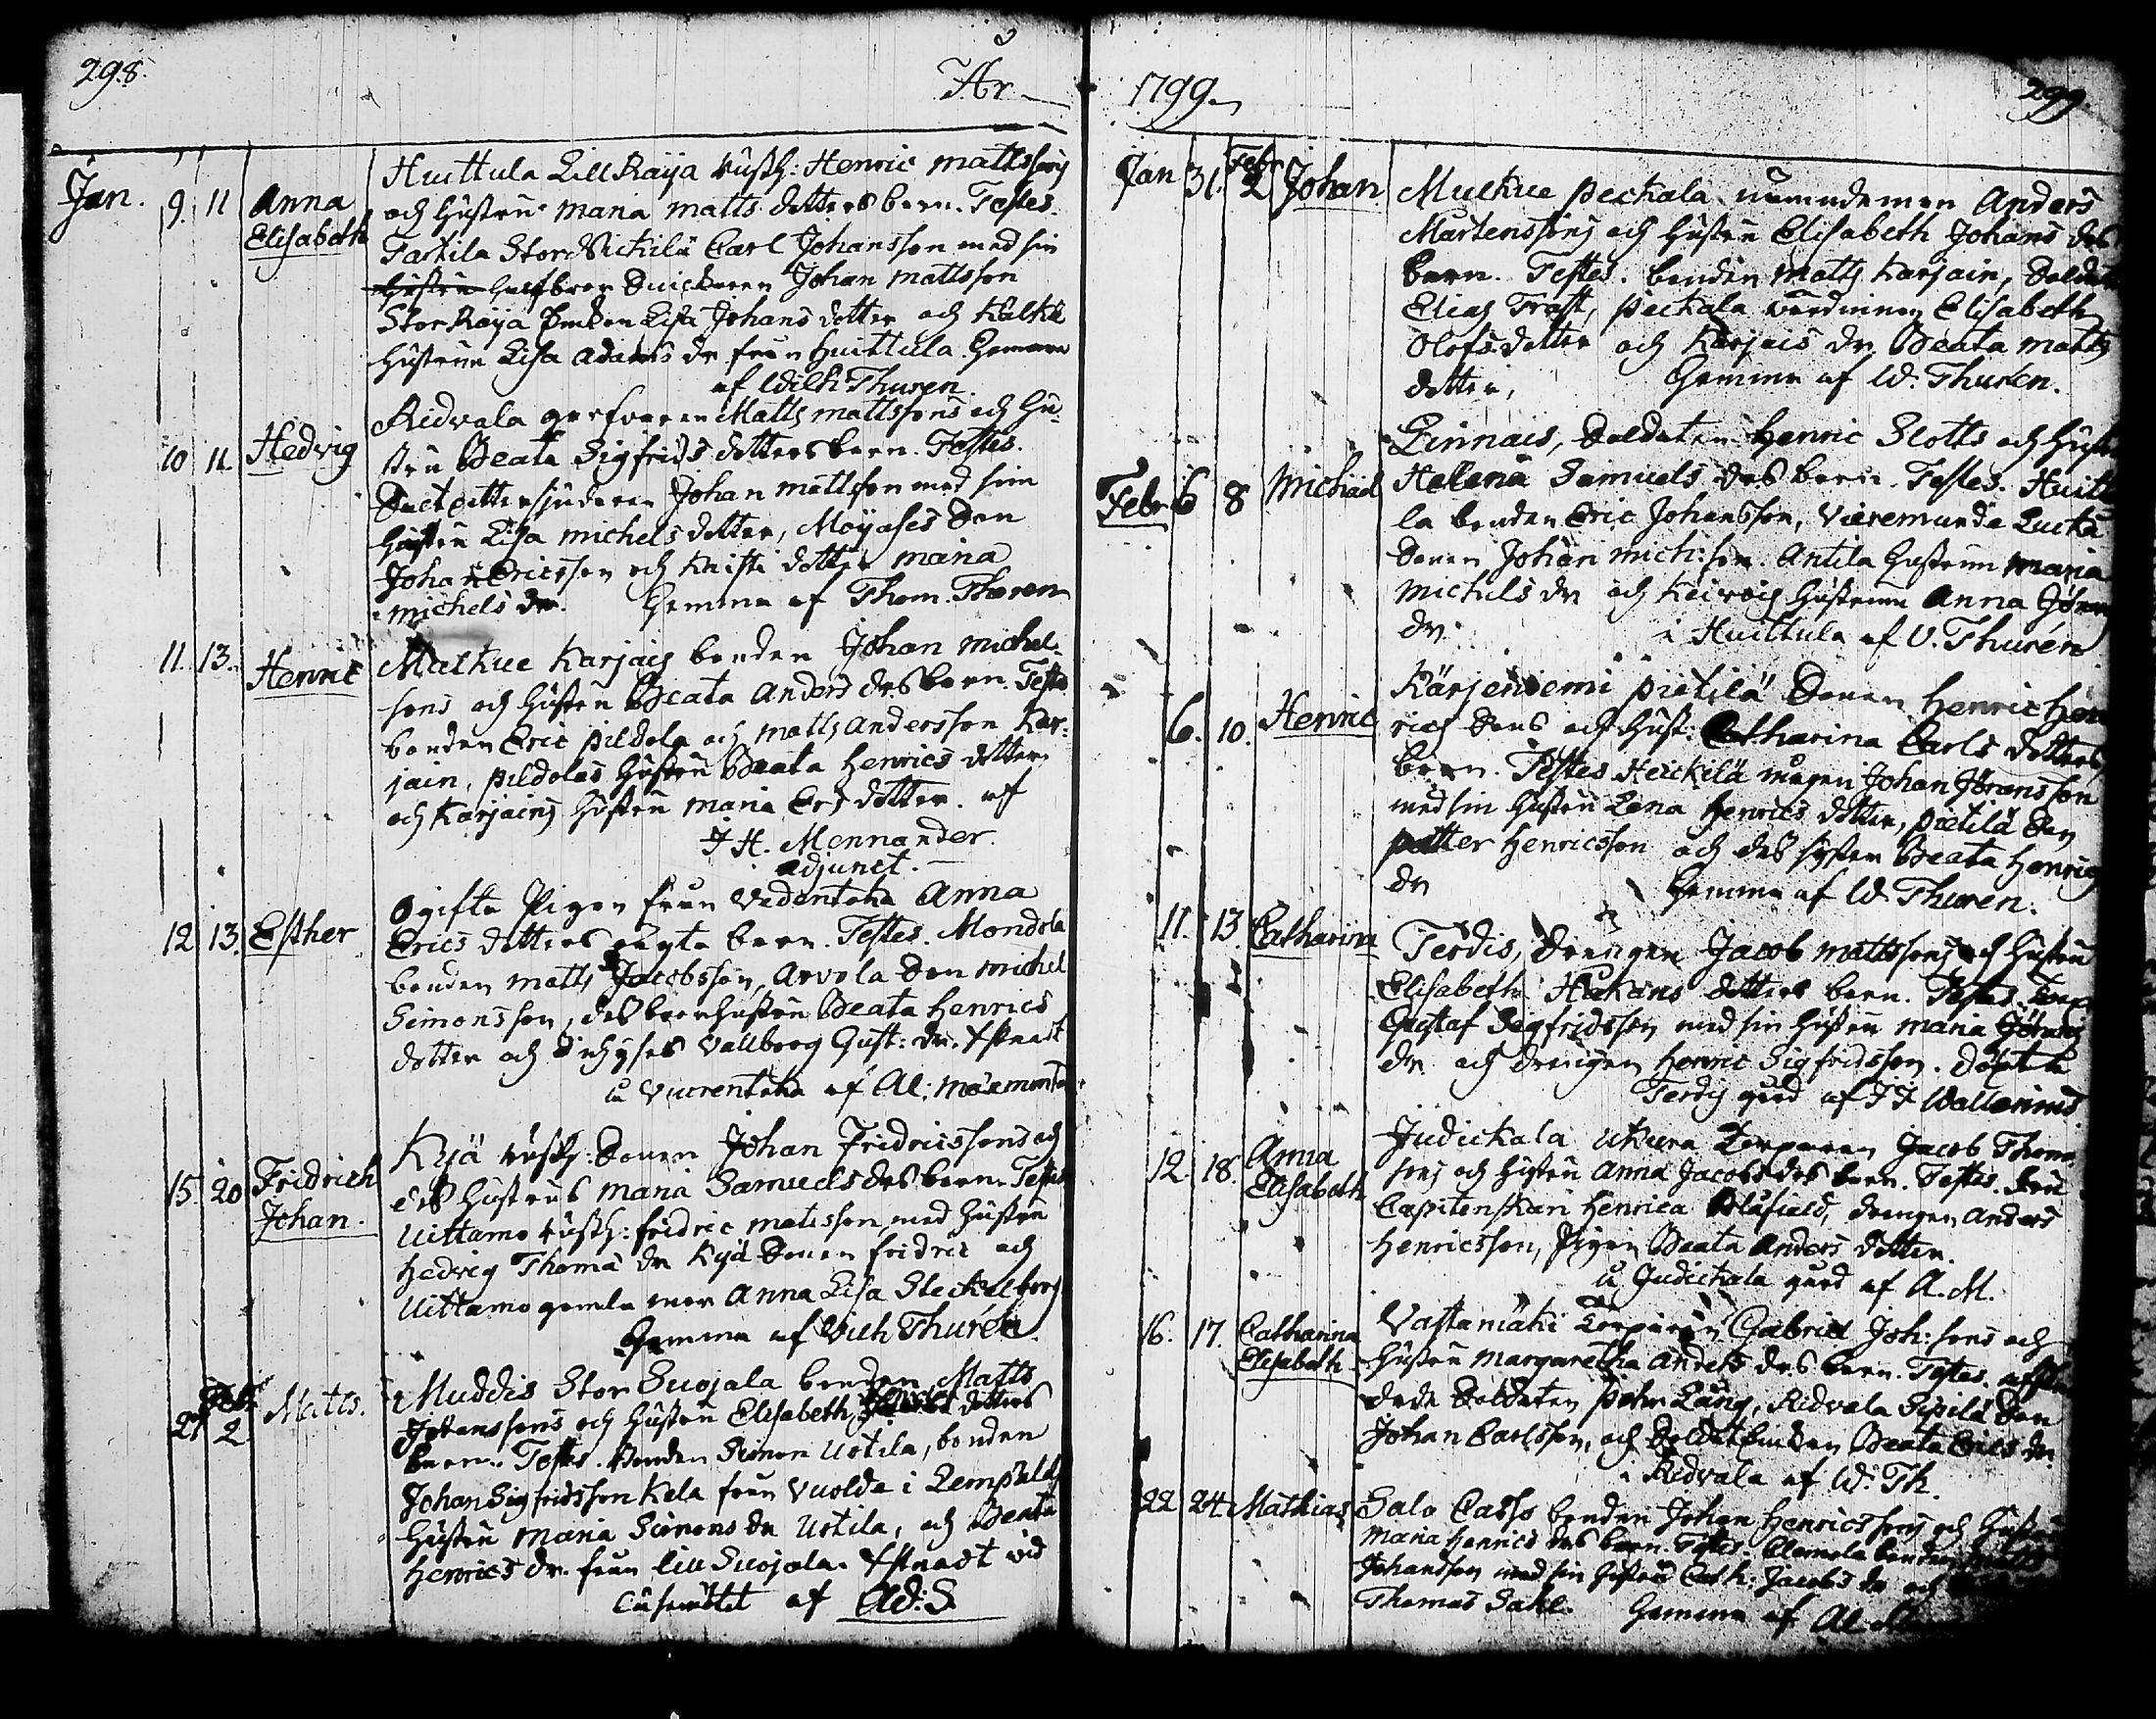 298.
År
Jan. 9. 11 Anna Elisabeth
Huittula Lill Raija rusth: Henric Mattssons
och hustru Maria Matts dotters barn. Testes.
Tarkila Stor Seickilä Carl Johansson med sin
hustru Johan Mattsson
Stor Raija Enkan Lisa Johans dotter och
hustrun Lisa Adams dr från Huittula. Hemma
af Wilh Thuren.
10 11. Hedvig
Ridvala Matts Mattssons och hu-
stru Beata Sigfrids dotters barn. Testes.
Johan Mattsson med sin
hustru Lisa Michels dotter, Moijases Son
Johan Ericsson och dotter Maria
Michels dr. Hemma af Thom. Thuren
11. 13. Henric
Matkue Karjais bonden Johan Michel-
sons och hustru Beata Anders drs barn. Testes
bonden Eric Pildola och Matts Andersson Kar-
jain, Pildolas hustru Beata Henrics dotter
och Karjains hustru Maria Ers dotter. af
J H. Mennander.
adjunct.
12 13. Esther
Ogifta Pigan från Vedentaka Anna
Erics dotters oägta barn. Testes. Mondola
bonden Matts Jacobsson, Arvola Son Michel
Simonsson, des hustru Beata Henrics
dotter och Vallborg Gust: dr.
af Al:
15. 20 Fridrich Johan.
Kyjä rusth: Sonen Johan Fridricssons och
des hustrus Maria Samuels drs barn. Testes
Uittamo rusth: Fridric Matsson med hustru
Hedvig Thoma dr Kyjä Sonen Fridric och
Uittamo gamla mor Anna Lisa Steckelborg
Hemma af Vilh Thurén.
27 Feb. 2 Matts.
Muddis Stor Suojala bonden Matts
Johanssons och hustru Elisabeth dotters
barn. Testes. Bonden Simon Uotila, bonden
Johan Sigfridsson Kela från Vuolde i Lempälä
hustru Maria Simons dr Uotila, och Beata
Henrics dr. från lill Suojala. vid
af Ad: S.
1799.
299.
Jan 31. Febr 2 Johan
Mutkue Peckala nämndeman Anders
Mårtenssons och hustru Elisabeth Johans drs
barn. Testes. bonden Matts Karjain, Soldaten
Elias Trast, Peckala värdinnan Elisabeth
Olofsdotter och Karjais dr Beata Matts
dotter. Hemma af W. Thuren.
Febr 6 8 Michael
Linnais, Soldaten Henric Slotts och hustru
Helena Samuels drs barn. Testes. Huittu
la bonden Eric Johansson,
Sonen Johan Mich:son. Antila hustrun Maria
Michels dr och hustrun Anna
dr. i Huittula af V. Thurén
6. 10. Henric
Kärjenniemi Pietilä Sonen Henric Hen
rics Sons och hust: Catharina Carls dotters
barn. Testes Heickilä mågen Johan Jöransson
med sin hustru Lena Henrics dotter, Pietilä Son
Petter Henricsson och des syster Beata Henrics
dr Hemma af W. Thuren.
11. 13. Catharina
Terdis, Drängen Jacob Mattssons och hustru
Elisabeth Håkans dotters barn. Testes.
Gustaf Sigfridsson med sin hustru Maria Jörans
dr. och drängen Henric Sigfridsson. Döpt å
Terdis gård af J J Wallenius
12. 18. Anna Elisabeth
Judickala Ukura Torparen Jacob Thoma
sons och hustru Anna Jacobs drs barn. Testes. Fru
Capitenskan Henrica Blåfield, drängen Anders
Henricsson, Pigan Beata Anders dotter.
å Judickala gård af A. M.
16. 17. Catharina Elisabeth
Vastamäki Torparen Gabriel Joh: sons och
hustru Margaretha Anders drs barn. Testes. afske
dade Soldaten Pehr Läng, Ridvala Sipilä Son
Johan Carlsson, och Soldat Enkan Beata Erics dr
i Ridvala af W. Th.
22 24. Mathias
Salo Casso bonden Johan Henricssons och hustru
Maria Henrics drs barn. Testes. bonden
Johansson med sin hustru Cath: Jacobs dr och
Thomas Sake. Hemma af Al.